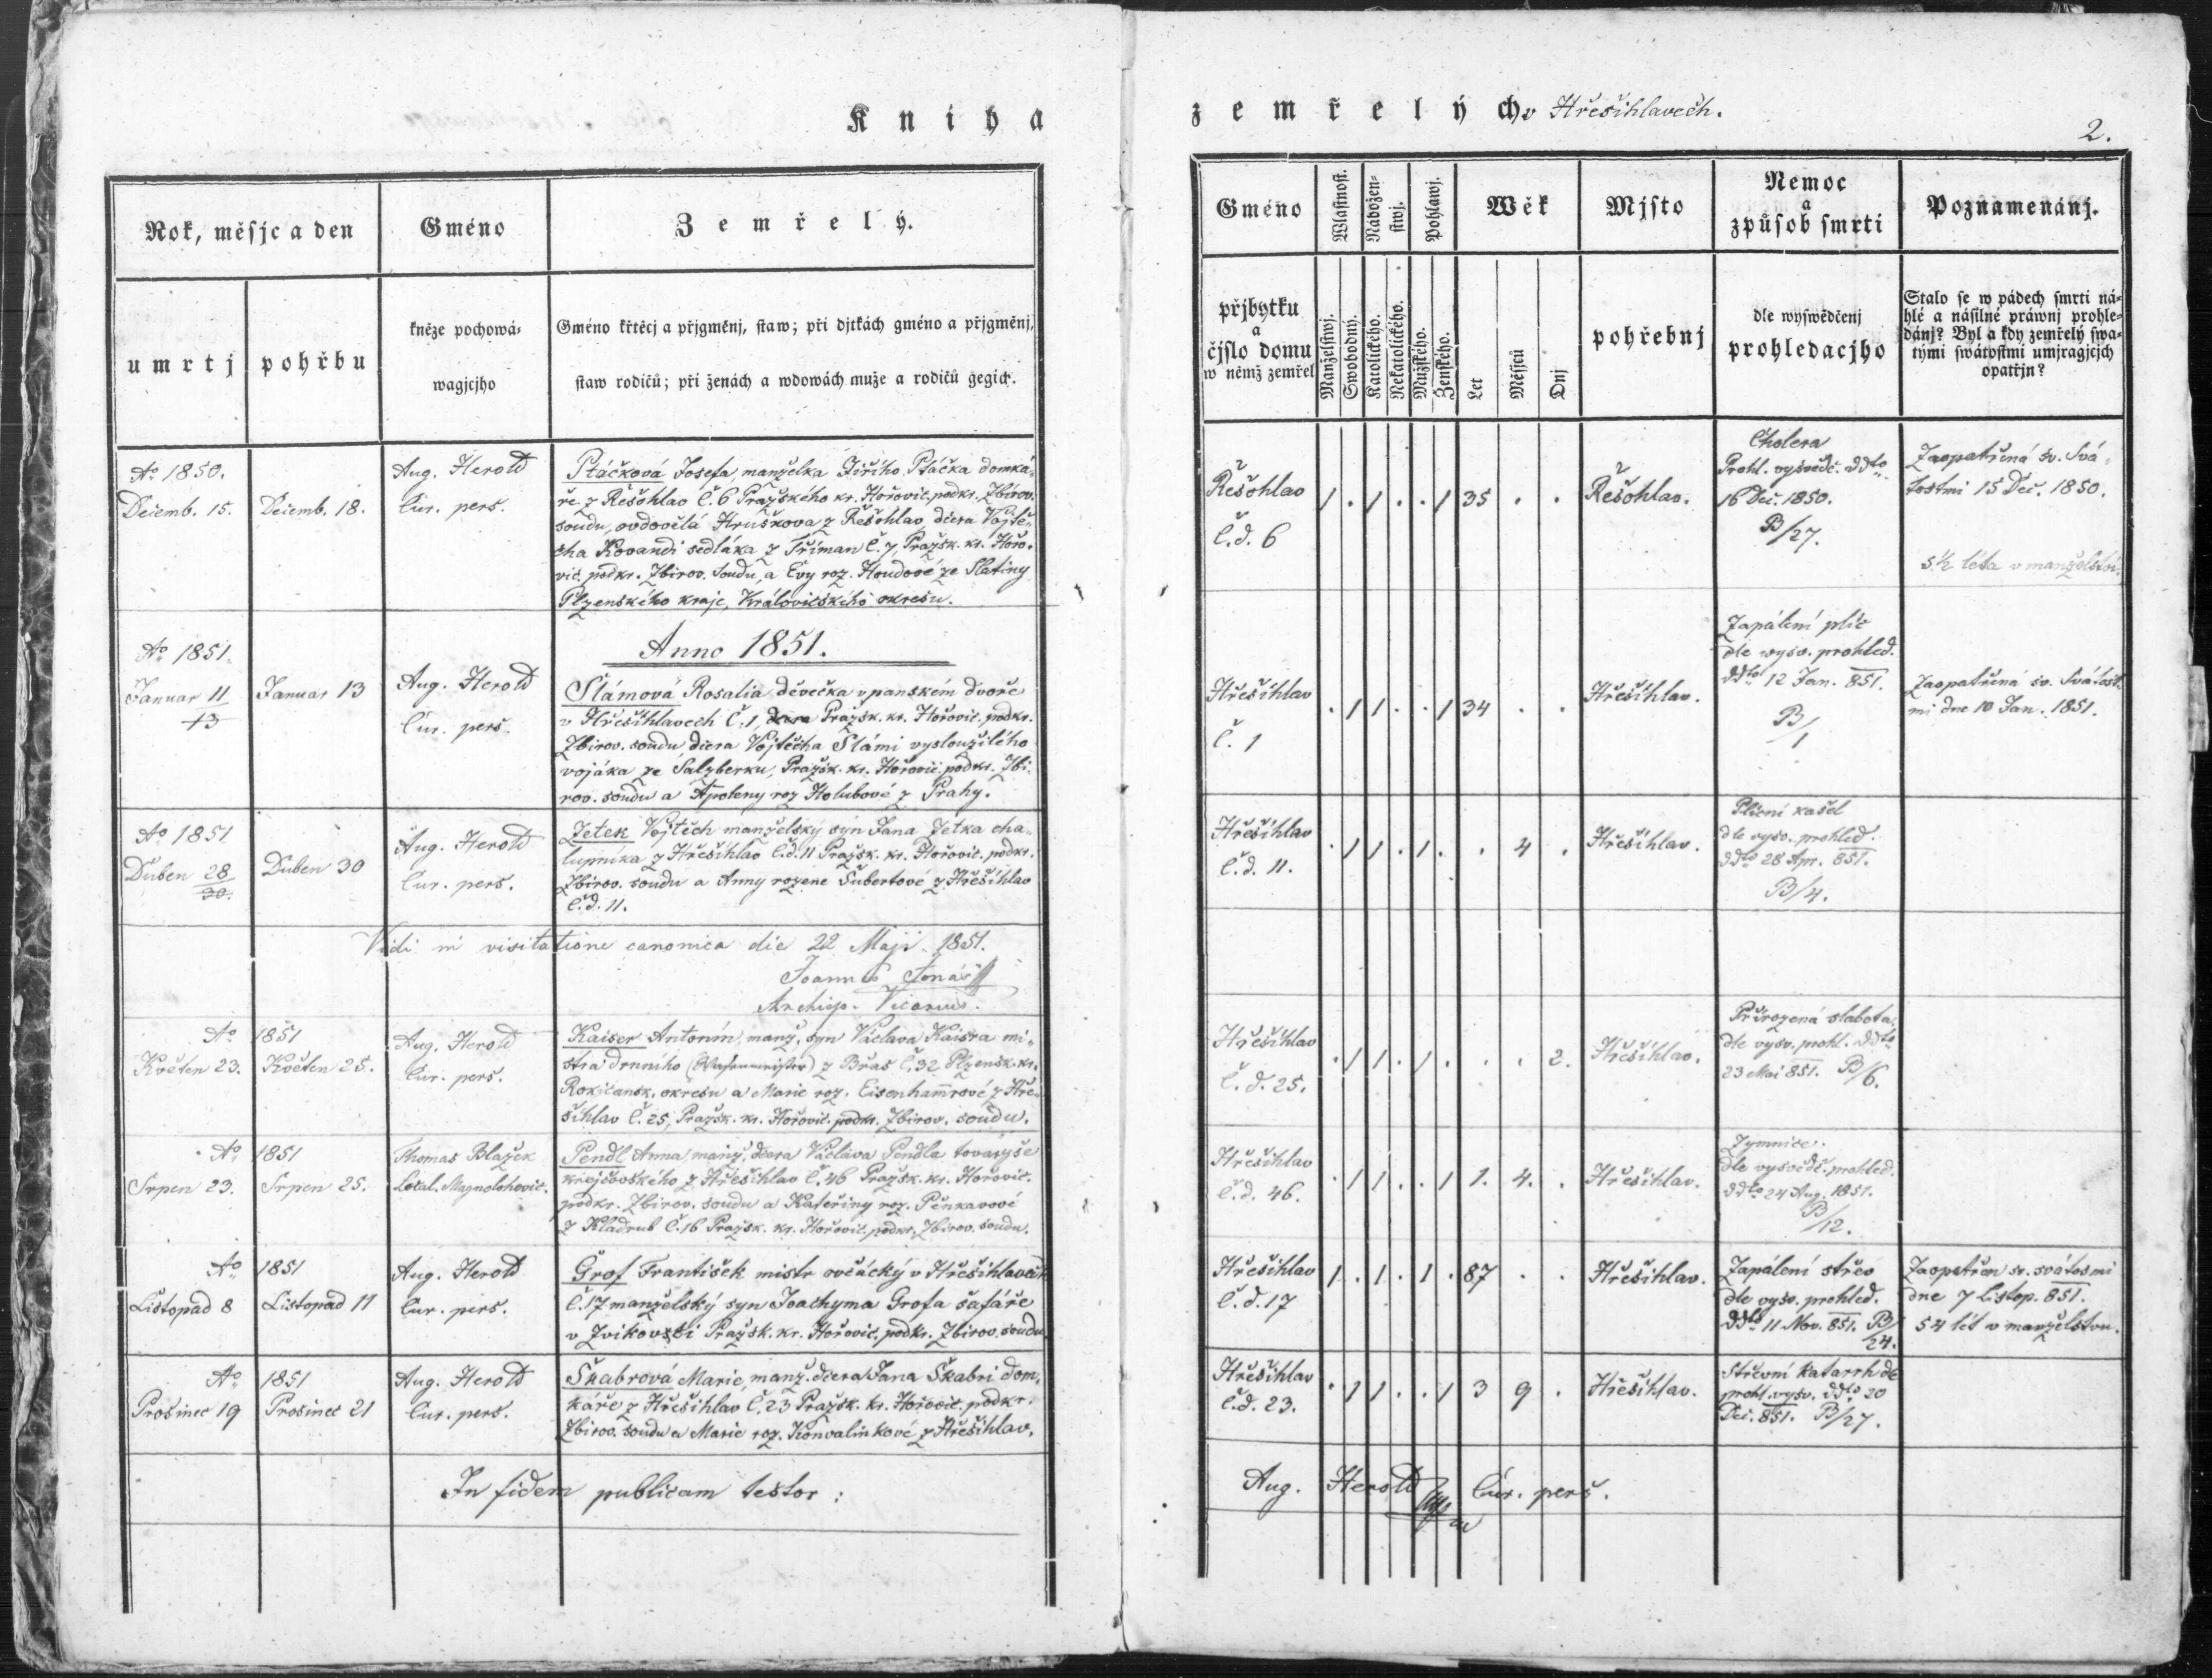 Kniha
Rok, měsjc a den
Gméno
Zemřelý.
umrtj
pohřbu
kněze pochowá-
wagjcjho
Gméno křtěcj a přjgměnj, staw; při djtkách gméno a přjgměnj,
staw rodičů; při ženách a wdowách muže a rodičů gegich.
Ao 1850.
Decemb. 15.
Decemb. 18.
Aug. Herold
Cur. pers.
Ptáčková Josefa, manželka Jiřího Ptáčka domká-
ře z Řešohlav č. 6 Pražského kr. Hořovic. podkr. Zbirov.
soudu, ovdovělá Hruškova z Řešohlav, dcera Vojtě-
cha Kovandi sedláka z Tříman č. 7, Pražsk. kr. Hořo-
vic. podkr. Zbirov. soudu, a Evy roz. Houdové ze Slatiny
Plzenského kraje, Královického okresu.
Anno 1851.
Ao 1851.
Januar 11
13
Januar 13
Aug. Herold
Cur. pers.
Slámová Rosalia děvečka v panském dvoře
v Hřešihlavech č. 1, Pražsk. kr. Hořovic. podkr.
Zbirov. soudu dcera Vojtěcha Slámi vysloužilého
vojáka ze Salzberku, Pražsk. kr. Hořovic. podkr. Zbi-
rov. soudu a Apoleny roz Holubové z Prahy.
Ao 1851
Duben 28
30.
Duben 30
Aug. Herold
Cur. pers.
Zetek Vojtěch manželský syn Jana Zetka cha-
lupníka z Hřešihlav č.d. 11 Pražsk. kr. Hořovic. podkr.
Zbirov. soudu a Anny rozene Šubertové z Hřešihlav
č.d. 11.
Vidi in visitatione canonica die 22 Maji 1851.
Joannes Jonáš
Archiep. Vicarius.
Ao 1851
Květen 23.
Květen 25.
Aug. Herold
Cur. pers.
Kaiser Antonín, manž. syn Václava Kaisra mi-
stra z Břas č. 32 Plzensk. kr.
Rokicansk. okresu a Marie roz. Eisenhamrové z Hře-
šihlav č. 25, Pražsk. kr. Hořovic. podkr. Zbirov. soudu.
Ao 1851
Srpen 23.
Srpen 25.
Thomas Blažek
Local.
Pendl Anna, manž. dcera Václava Pendla tovaryše
krejčovského z Hřešihlav č. 46 Pražsk. kr. Hořovic.
podkr. Zbirov. soudu a Kateřiny roz. Pěnkavové
z Kladrub č. 16 Pražsk. kr. Hořovic. podkr. Zbirov. soudu.
Ao 1851
Listopad 8
Listopad 11
Aug. Herold
Cur. pers.
Grof František mistr ovčácký v Hřešihlavech
č. 17 manželský syn Joachyma Grofa šafáře
v Pražsk. kr. Hořovic. podkr. Zbirov. soudu
Ao 1851
Prosinec 19
Prosinec 21
Aug. Herold
Cur. pers.
Škabrová Marie, manž. dcera Jana Škabri dom-
káře z Hřešihlav č. 23 Pražsk. kr. Hořovic. podkr.
Zbirov. soudu a Marie roz. Konvalinkové z Hřešihlav.
In fidem publicam testor:
zemřelých v Hřešihlavech.
2.
Gméno
Wlastnost.
Nábožen-
stwj.
Pohlawj.
Wěk
Mjsto
Nemoc
a
způsob smrti
Poznamenánj.
přjbytku
a
čjslo domu
w němž zemřel
Manželstwj.
Swobodný.
Katolického.
Nekatolického.
Mužského.
Ženského.
Let
Měsjců
Dnj
pohřebnj
dle wyswědčenj
prohledacjho
Stalo se w pádech smrti ná-
hlé a násilné práwnj prohle-
dánj? Byl a kdy zemřelý swa-
tými swátostmi umjragjcjch
opatřjn?
Řešohlav
č.d. 6
1 . 1 . . 1 35 . .
Řešohlav.
Cholera
Prohl. vysvědč. ddto
16 Dec. 1850.
B/27.
Zaopatřená sv. Svá-
tostmi 15 Dec. 1850.
5 1/2 léta v manželství.
Hřešihlav
č. 1
. 1 1 . . 1 34 . .
Hřešihlav.
Zapálení plic
dle vysv. prohled.
ddto 12 Jan. 851.
B/1
Zaopatřená sv. Svátost-
mi dne 10 Jan. 1851.
Hřešihlav
č.d. 11.
. 1 1 . 1 . . 4 .
Hřešihlav.
Plicní kašel
dle vysv. prohled.
ddto 28 Apr. 851.
B/4.
Hřešihlav
č.d. 25.
. 1 1 . 1 . . . 2.
Hřešihlav.
Přirozená slabota.
dle vysv. prohl. ddto
23 Mai 851. B/6.
Hřešihlav
č.d. 46.
. 1 1 . . 1 1. 4. .
Hřešihlav.
Zymnice.
dle vysvědč. prohled.
ddto 24 Aug. 1851.
B/12.
Hřešihlav
č.d. 17
1 . 1 . 1 . 87 . .
Hřešihlav.
Zapálení střev
dle vysv. prohled.
ddto 11 Nov. 851. B/24.
Zaopatřen sv. svátosmi
dne 7 listop. 851.
54 lét v manželstvu.
Hřešihlav
č.d. 23.
. 1 1 . . 1 3 9 .
Hřešihlav.
Střevní katarrh dle
prohl. vysv. ddto 20
Dec. 851. B/27.
Aug. Herold Cur. pers.